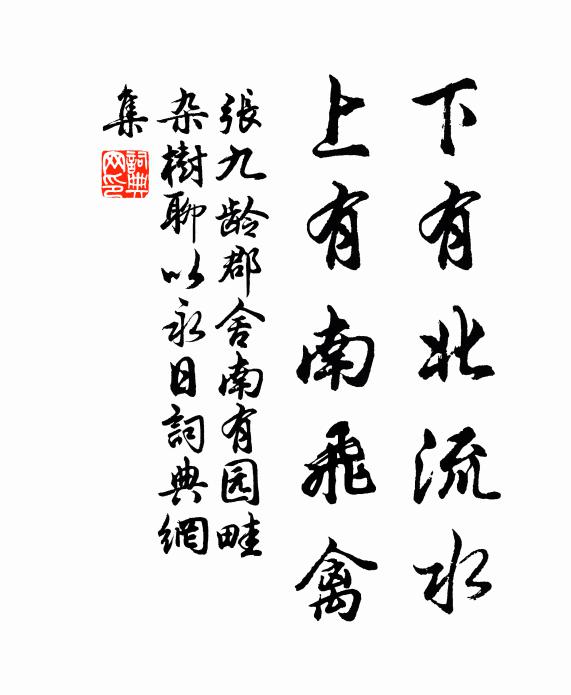 下有北流水
上有南飛禽
張九龄郡舍南有园畦
杂樹聊以永日詞典網
集
詞典
网印